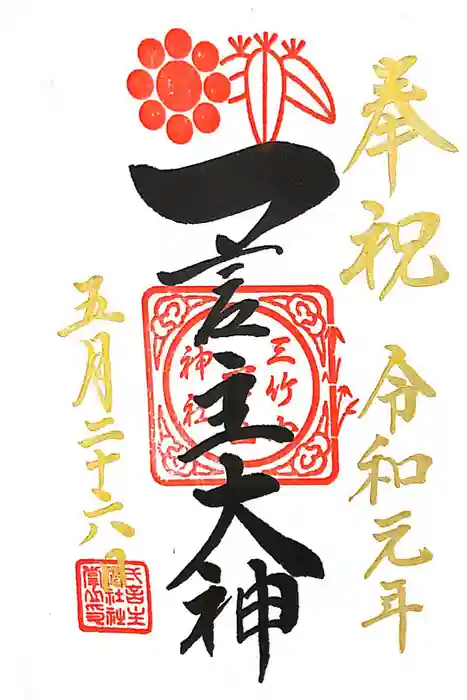 奉祝 令和元年
一言主大神
三竹山
神社
五月二十六日